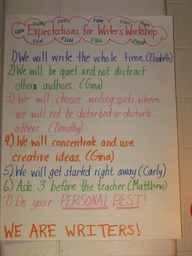 FUN FUN FUN FUN FUN
Expectations for Writer's Workshop
FUN FUN FUN FUN
1) We will write the whole time. (Elizabeth)
2) We will be quiet and not distract
others authors. (Gina)
3) We will choose writing spots where
we will not be disturbed or disturb
others. (Timothy)
4) We will concentrate and use
creative ideas. (Gina)
5) We will get started right away (Carly)
6) Ask 3 before the teacher (Matthew)
7) Do your PERSONAL BEST!
WE ARE WRITERS!